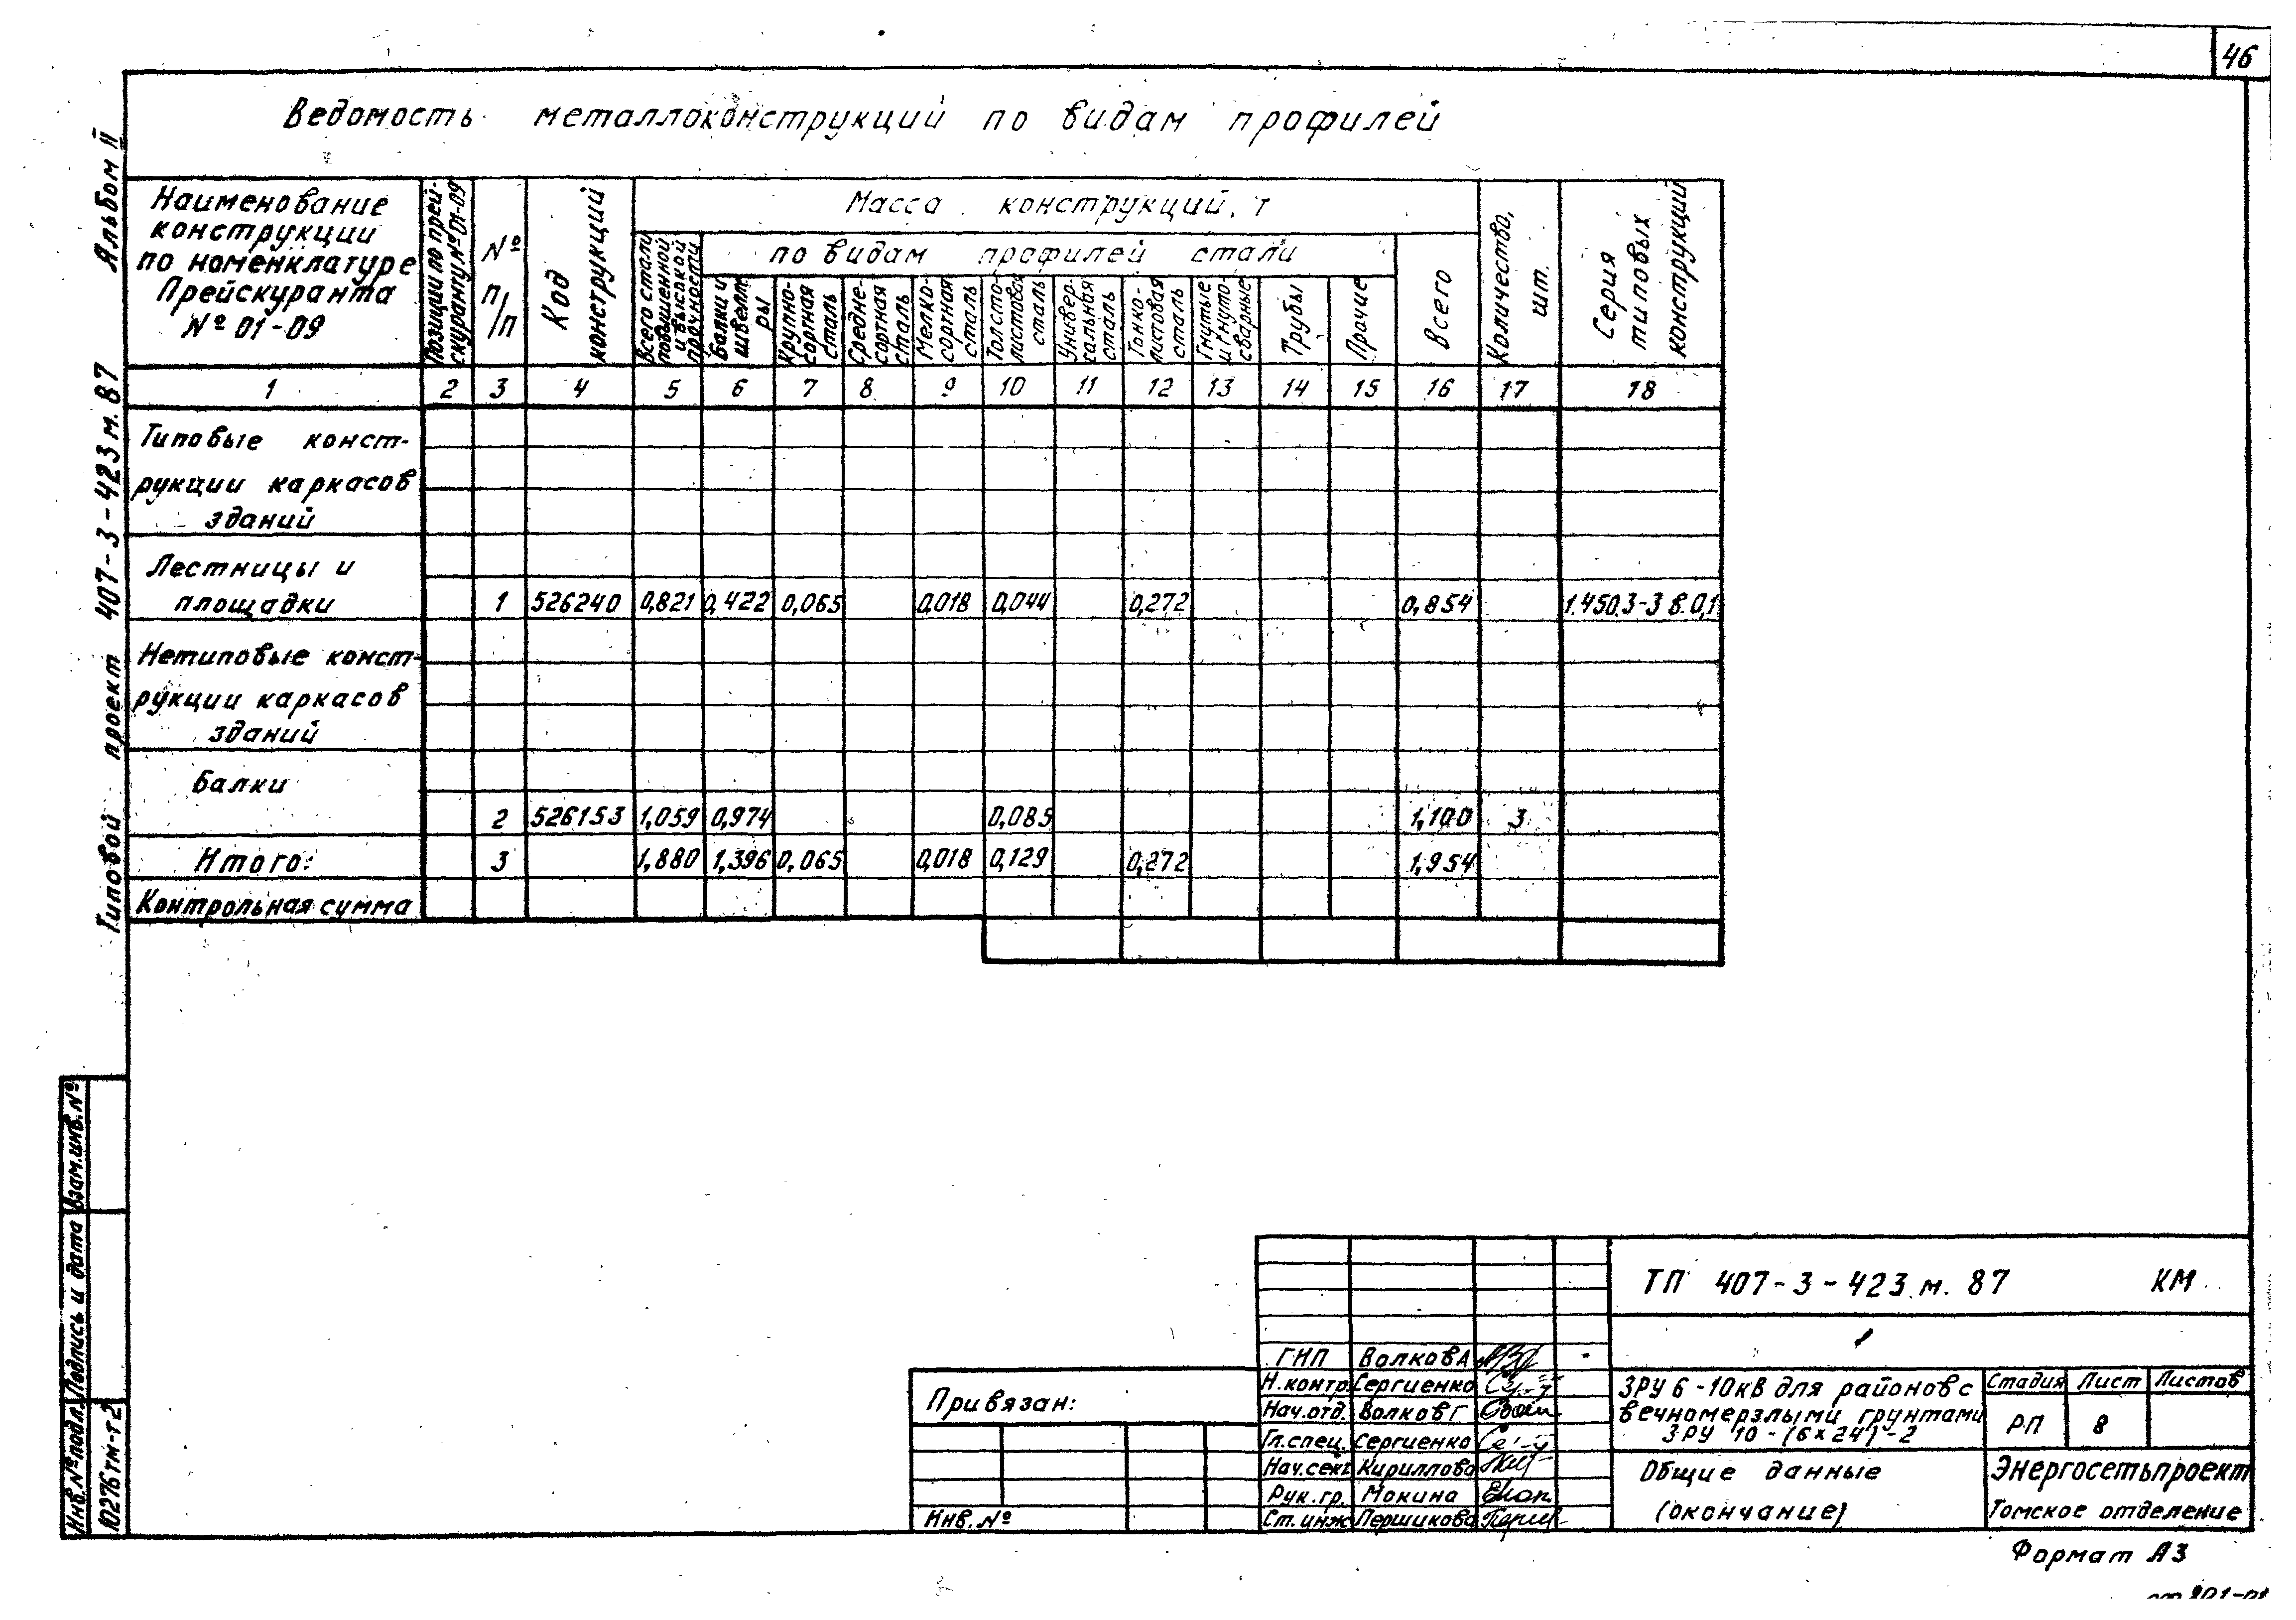 46
Ведомость металлоконструкций по видам профилей
Альбом II
Типовой проект 407-3-423 м.87
Наименование
конструкции
по номенклатуре
Прейскуранта
№ 01-09
Позиции по прей-
скуранту № 01-09
№
п/п
Код
конструкций
Масса конструкций, т
Всего стали
повышенной
и высокой
прочности
по видам профилей стали
Балки и
швелле-
ры
Крупно-
сортная
сталь
Средне-
сортная
сталь
Мелко-
сортная
сталь
Толсто-
листовая
сталь
Универ-
сальная
сталь
Тонко-
листовая
сталь
Гнутые
и гнуто-
сварные
Трубы
Прочие
Всего
Количество,
шт.
Серия
типовых
конструкций
1 2 3 4 5 6 7 8 9 10 11 12 13 14 15 16 17 18
Типовые конст-
рукции каркасов
зданий
Лестницы и
площадки 1 526240 0,821 0,422 0,065 0,018 0,044 0,272 0,854 1.450.3-3 в.0,1
Нетиповые конст-
рукции каркасов
зданий
Балки
2 526153 1,059 0,974 0,085 1,100 3
Итого: 3 1,880 1,396 0,065 0,018 0,129 0,272 1,954
Контрольная сумма
Взам.инв.№
Подпись и дата
Инв.№подл.
10276тм-т2
Привязан:
Инв. №
ГИП Волков А
Н.контр. Сергиенко
Нач.отд. Волков Г
Гл.спец. Сергиенко
Нач.сект Кириллова
Рук.гр. Мокина
Ст.инж Першикова
ТП 407-3-423 м. 87 КМ
ЗРУ 6-10кВ для районов с
вечномерзлыми грунтами
ЗРУ 10-(6х24)-2
Стадия Лист Листов
РП 8
Общие данные
(окончание)
Энергосетьпроект
Томское отделение
Формат А3